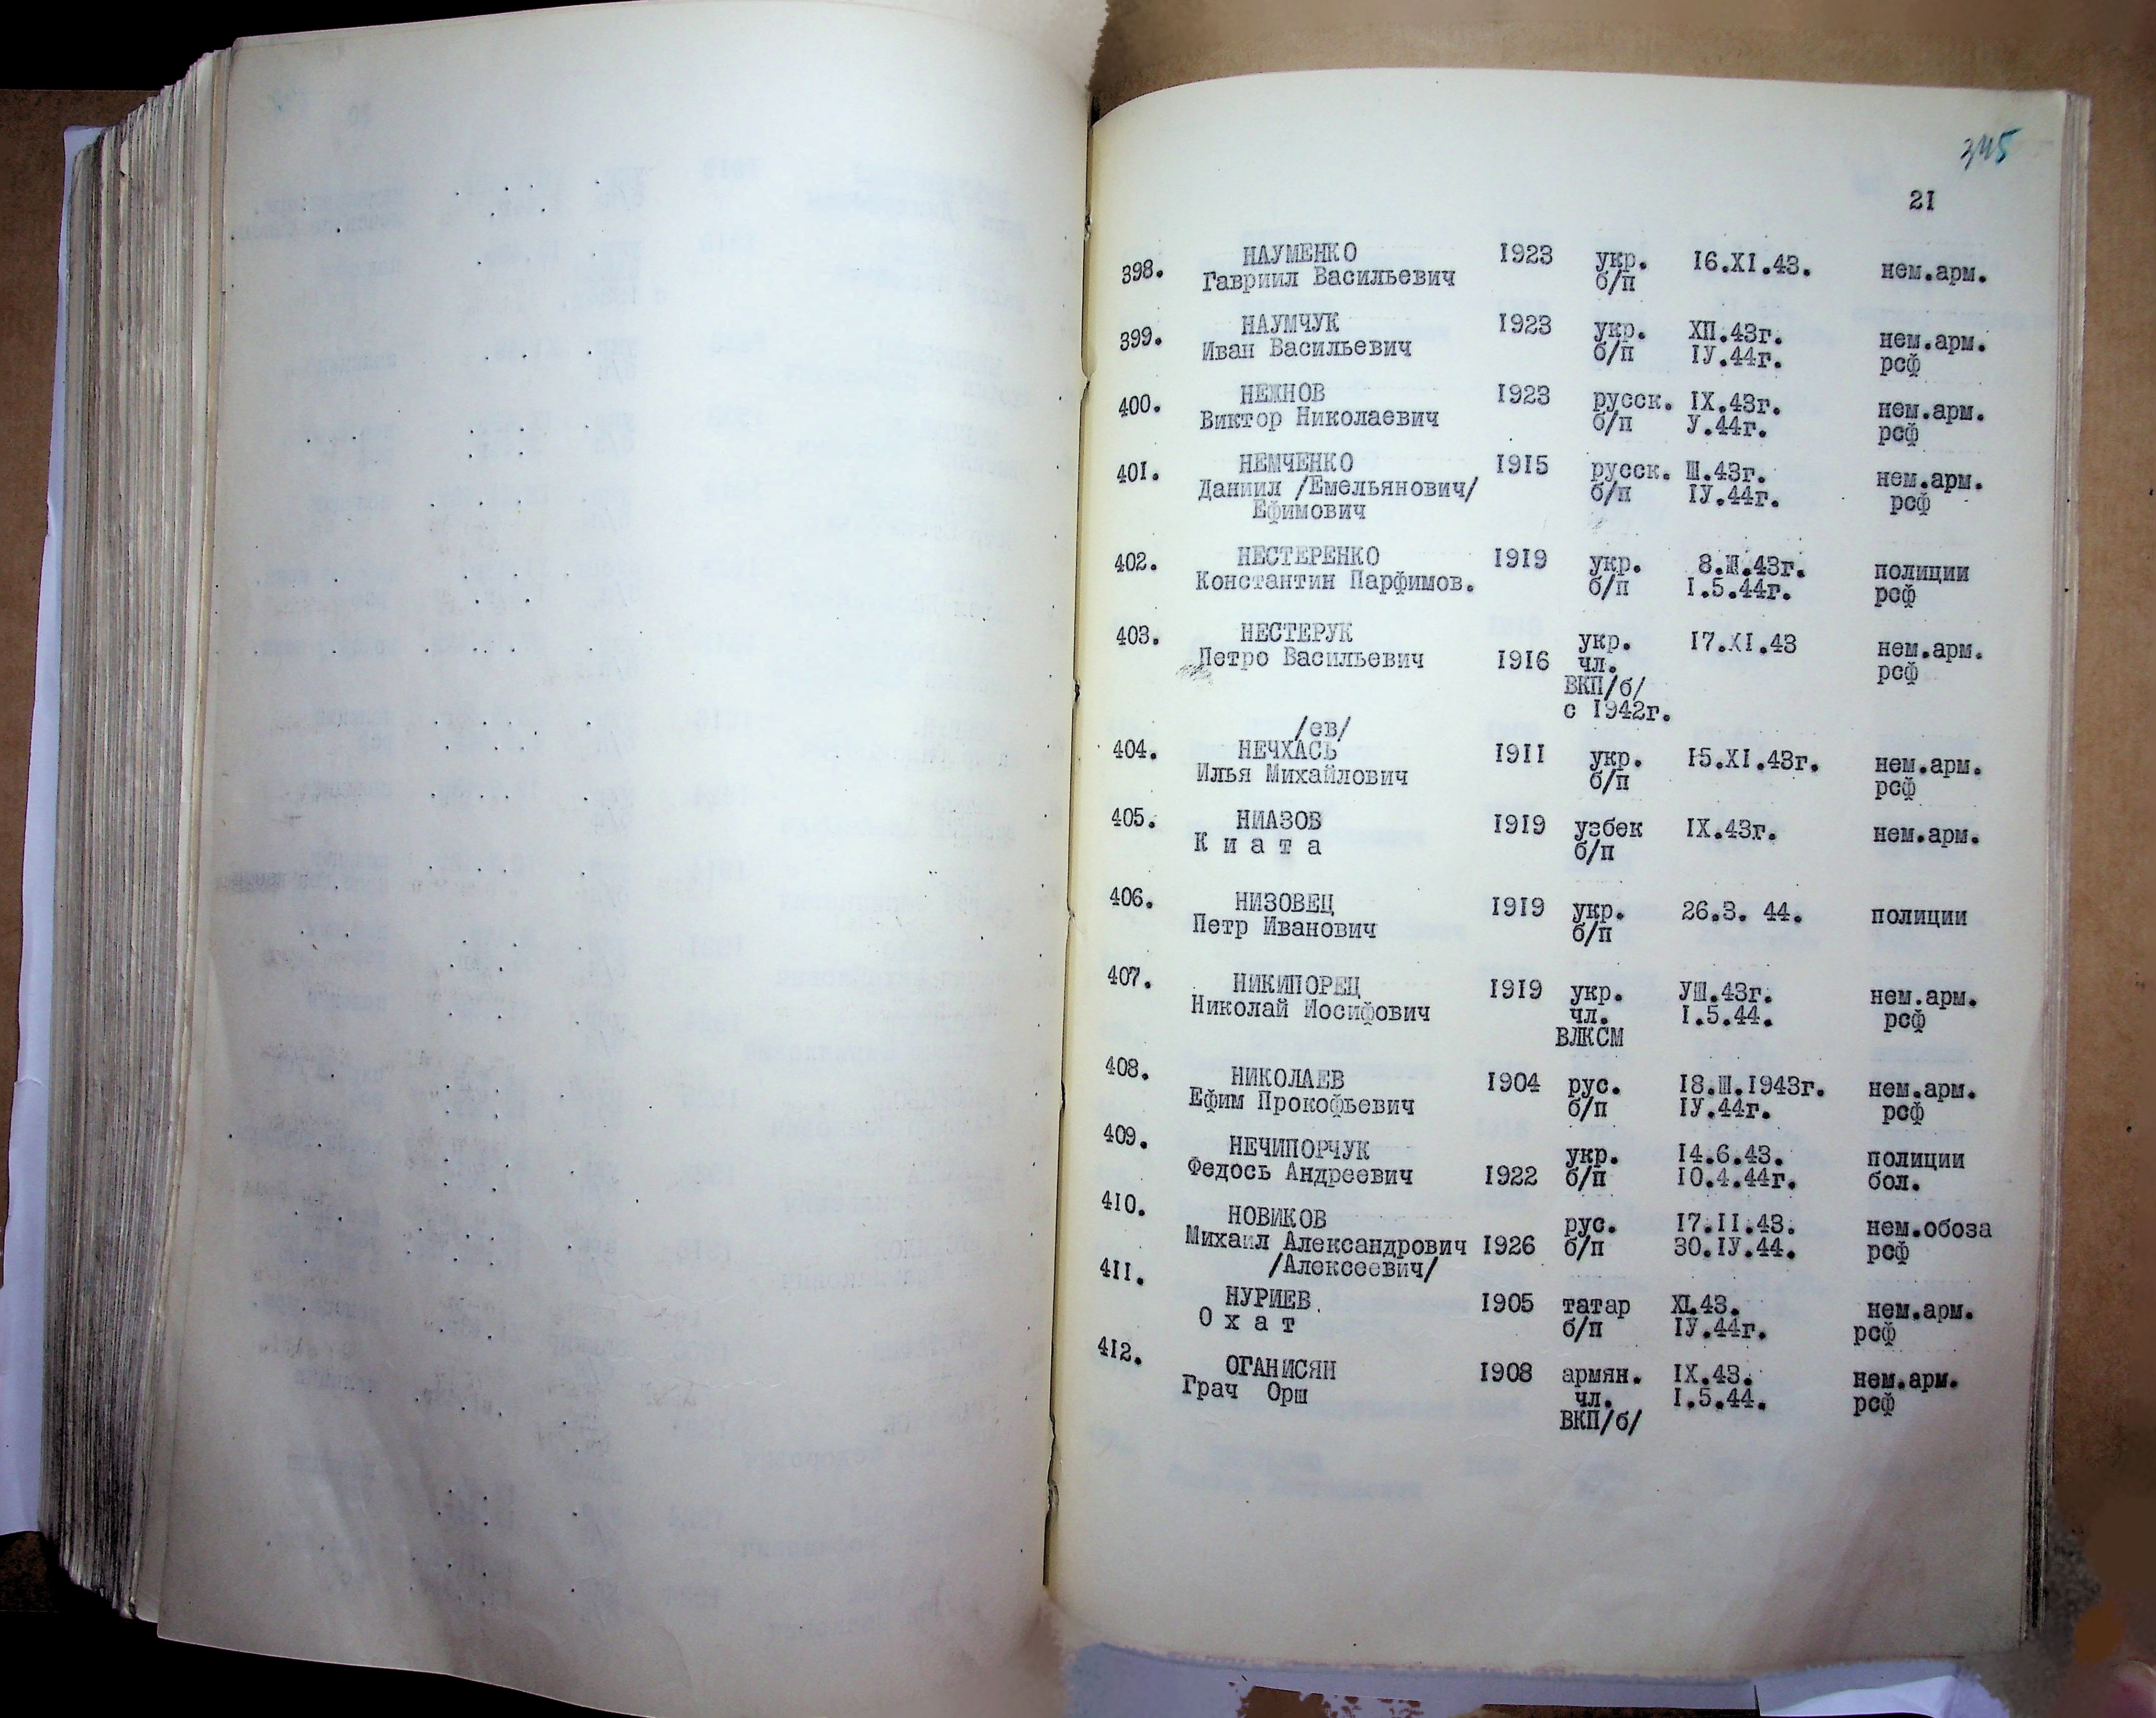 345
21
398. НАУМЕНКО 1923 укр. 16.XI.43. нем.арм.
Гавриил Васильевич б/п
399. НАУМЧУК 1923 укр. ХП.43г. нем.арм.
Иван Васильевич б/п IУ.44г. рсф
400. НЕЖНОВ 1923 русск. IX.43г. нем.арм.
Виктор Николаевич б/п У.44г. рсф
401. НЕМЧЕНКО 1915 русск. Ш.43г. нем.арм.
Даниил /Емельянович/ б/п IУ.44г. рсф
Ефимович
402. НЕСТЕРЕНКО 1919 укр. 8.Ш.43г. полиции
Константин Парфимов. б/п I.5.44г. рсф
403. НЕСТЕРУК укр. 17.XI.43 нем.арм.
Петро Васильевич 1916 чл. рсф
ВКП/б/
с 1942г.
/ев/
404. НЕЧХАСЬ 1911 укр. 15.XI.43г. нем.арм.
Илья Михайлович б/п рсф
405. НИАЗОВ 1919 узбек IX.43г. нем.арм.
К и а т а б/п
406. НИЗОВЕЦ 1919 укр. 26.3. 44. полиции
Петр Иванович б/п
407. НИКИПОРЕЦ 1919 укр. УШ.43г. нем.арм.
Николай Иосифович чл. I.5.44. рсф
ВЛКСМ
408. НИКОЛАЕВ 1904 рус. 18.Ш.1943г. нем.арм.
Ефим Прокофьевич б/п IУ.44г. рсф
409. НЕЧИПОРЧУК укр. 14.6.43. полиции
Федось Андреевич 1922 б/п 10.4.44г. бол.
410. НОВИКОВ рус. 17.II.43. нем.обоза
Михаил Александрович 1926 б/п 30.IУ.44. рсф
/Алексеевич/
411. НУРИЕВ 1905 татар XI.43. нем.арм.
О х а т б/п IУ.44г. рсф
412. ОГАНИСЯН 1908 армян. IX.43. нем.арм.
Грач Орш чл. I.5.44. рсф
ВКП/б/